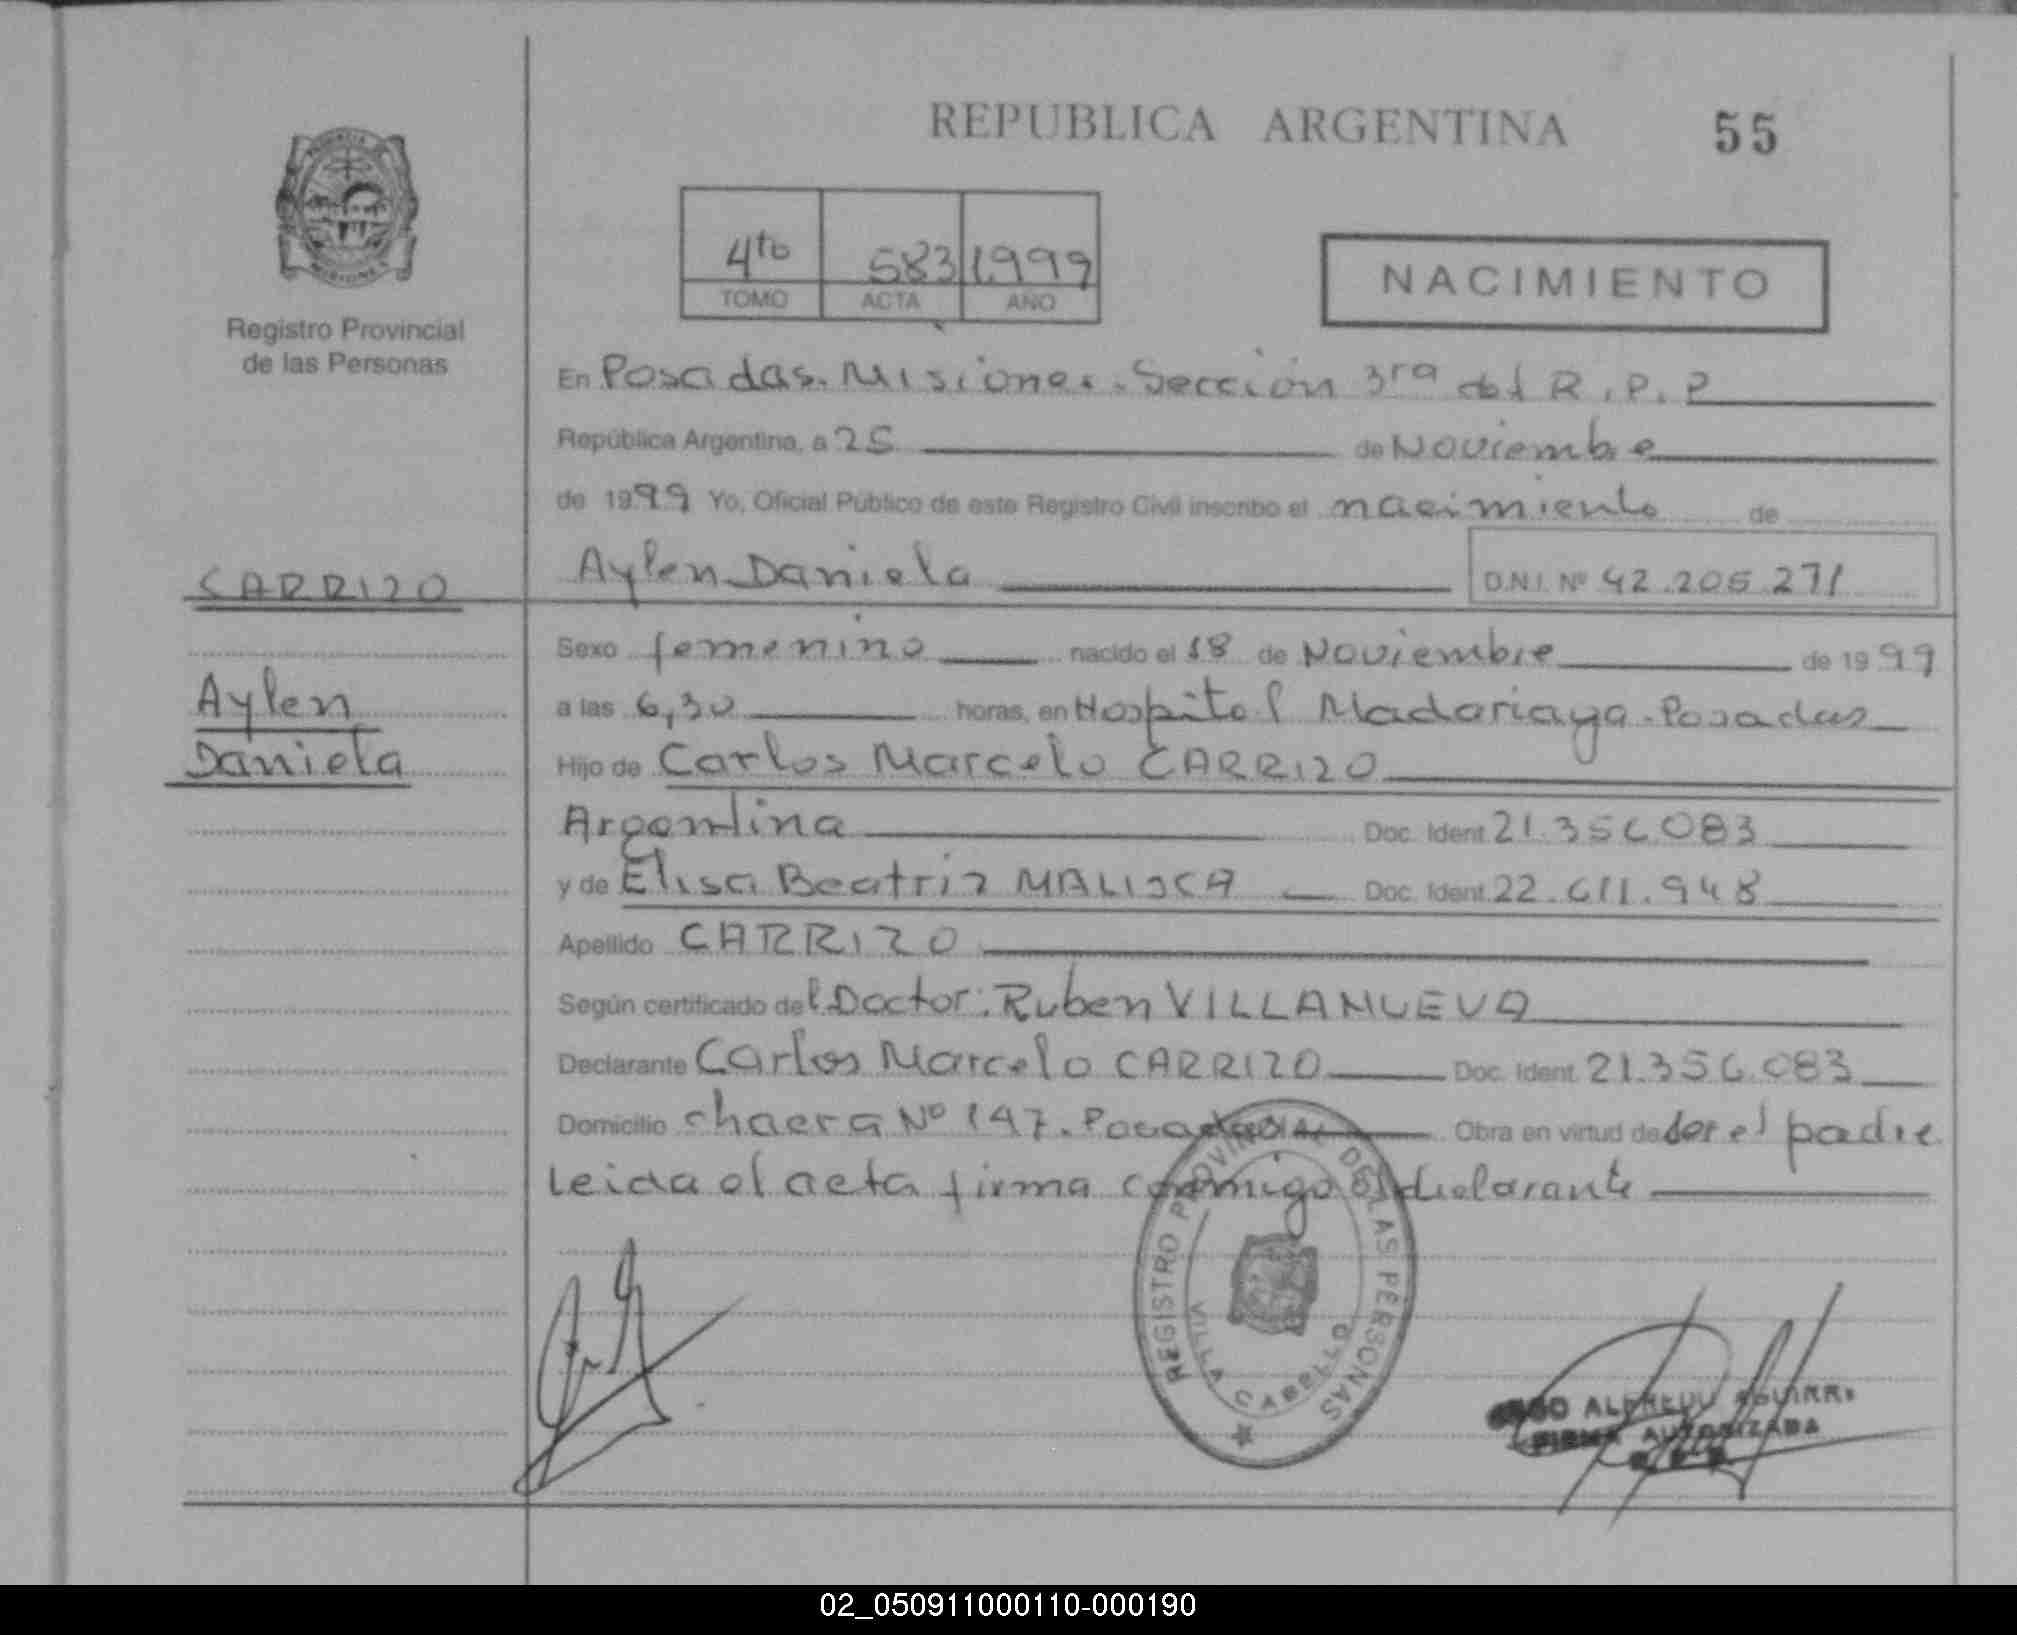 REPUBLICA ARGENTINA
55
4to 583 1.999
TOMO ACTA AÑO
NACIMIENTO
Registro Provincial
de las Personas
En Posadas. Misiones. Sección 3ra del R.P.P
República Argentina, a 25 de Noviembre
de 1999 Yo, Oficial Público de este Registro Civil inscribo el nacimiento de
CARRIZO
Aylen Daniela
D.N.I. Nº 42.205.271
Sexo femenino nacido el 18 de Noviembre de 1999
Aylen
Daniela
a las 6,30 horas, en Hospital Madariaga - Posadas
Hijo de Carlos Marcelo CARRIZO
Argentina Doc. Ident. 21.356.083
y de Elisa Beatriz MALISCA Doc. Ident. 22.611.948
Apellido CARRIZO
Según certificado del Doctor: Ruben VILLANUEVA
Declarante Carlos Marcelo CARRIZO Doc. Ident. 21.356.083
Domicilio chacra Nº 147. Posadas Obra en virtud de ser el padre
Leida el acta firma conmigo el declarante
REGISTRO PROVINCIAL DE LAS PERSONAS
VILLA CABELLO
FIRMA AUTORIZADA
02_050911000110-000190